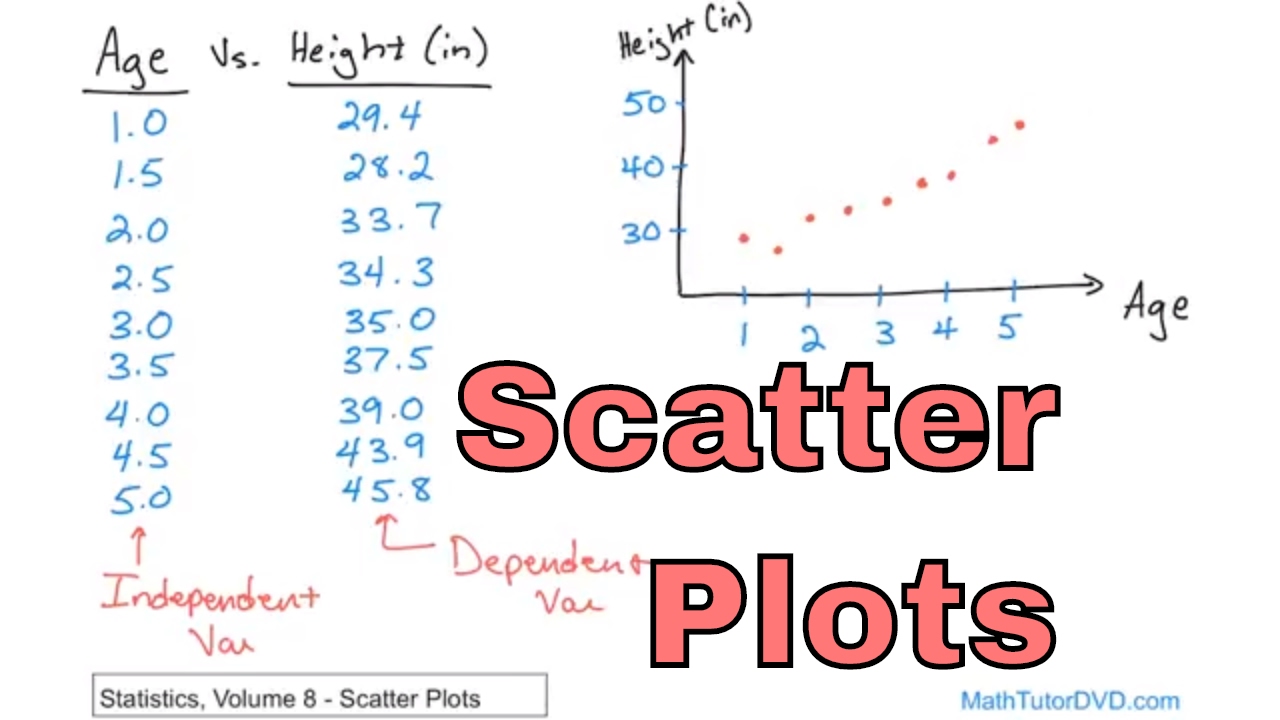 Age Vs. Height (in)
1.0 29.4
1.5 28.2
2.0 33.7
2.5 34.3
3.0 35.0
3.5 37.5
4.0 39.0
4.5 43.9
5.0 45.8
Independent
Var
Dependent
Var
Height (in)
50
40
30
1 2 3 4 5
Age
Scatter
Plots
Statistics, Volume 8 - Scatter Plots
MathTutorDVD.com